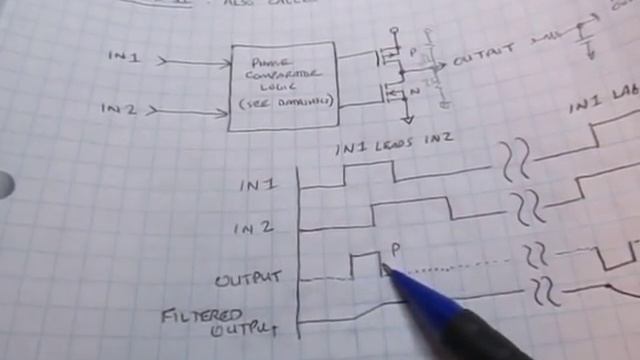 ALSO CALLED
IN1
IN2
PHASE
COMPARATOR
LOGIC
P
N
OUTPUT
IN1 LEADS IN2
IN1
IN2
OUTPUT
P
FILTERED
OUTPUT
IN1